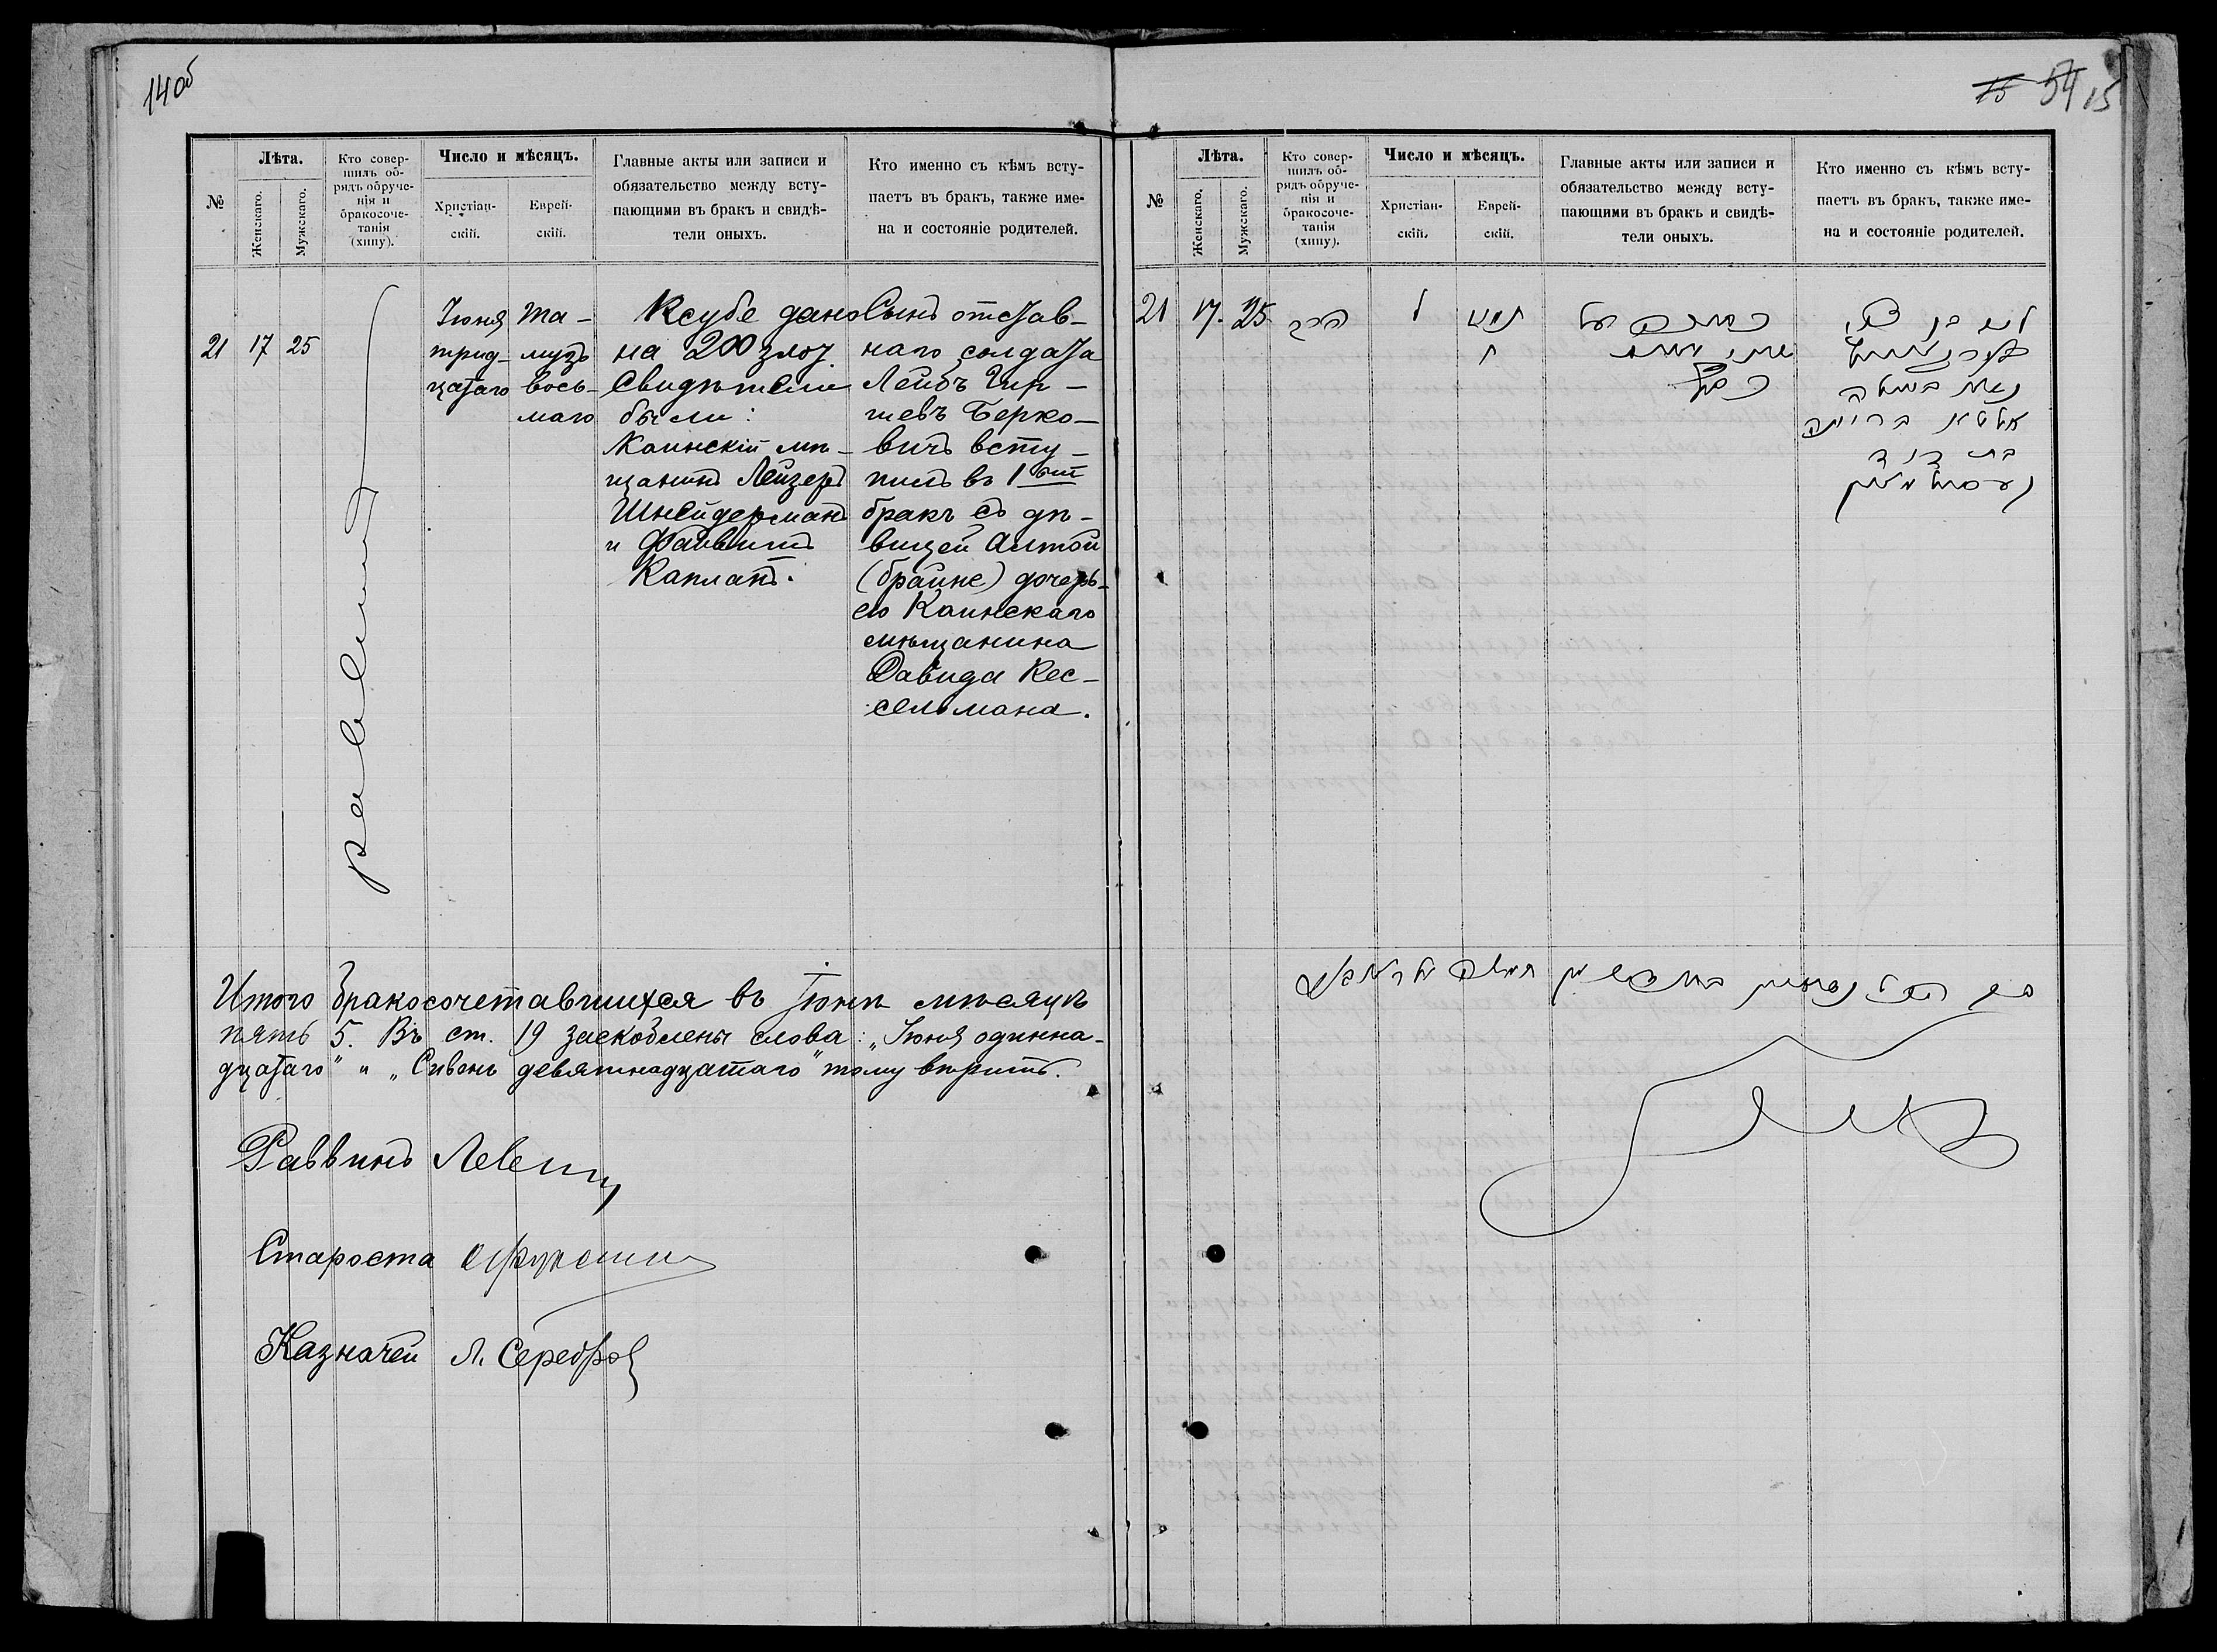 14об
№
Лѣта.
Женскаго.
Мужскаго.
Кто совер-
шилъ об-
рядъ обруче-
нія и
бракосоче-
танія
(хупу).
Число и мѣсяцъ.
Христіан-
скій.
Еврей-
скій.
Главные акты или записи и
обязательство между всту-
пающими въ бракъ и свидѣ-
тели оныхъ.
Кто именно съ кѣмъ всту-
паетъ въ бракъ, также име-
на и состояніе родителей.
21
17
25
раввинъ
Іюня
трид-
цатаго
Та-
музъ
вось-
маго
Ксубе дано
на 200 злот.
Свидѣтели
были:
Каинскій мѣ-
щанинъ Лейзеръ
Шнейдерманъ
и Файвишъ
Капланъ.
Сынъ отстав-
наго солдата
Лейбъ Гир-
шевъ Берко-
вичъ всту-
пилъ въ 1ый
бракъ съ дѣ-
вицей Алтой
(Брайне) дочерь-
ею Каинскаго
мѣщанина
Давида Кес-
сельмана.
Итого бракосочетавшихся въ Іюнѣ мѣсяцѣ
пять 5. Въ ст. 19 заскоблены слова: „Іюня одинна-
дцатаго" и „Сивонь девятнадцатаго" тому вѣрить.
Раввинъ Левинъ
Староста
Казначей Л. Серебро
15 54 15
№
Лѣта.
Женскаго.
Мужскаго.
Кто совер-
шилъ об-
рядъ обруче-
нія и
бракосоче-
танія
(хупу).
Число и мѣсяцъ.
Христіан-
скій.
Еврей-
скій.
Главные акты или записи и
обязательство между всту-
пающими въ бракъ и свидѣ-
тели оныхъ.
Кто именно съ кѣмъ всту-
паетъ въ бракъ, также име-
на и состояніе родителей.
21
17.
25
הרב
ל
תמוז
ח
בן
אלטא בריינה
בת דוד
קעסעלמאן